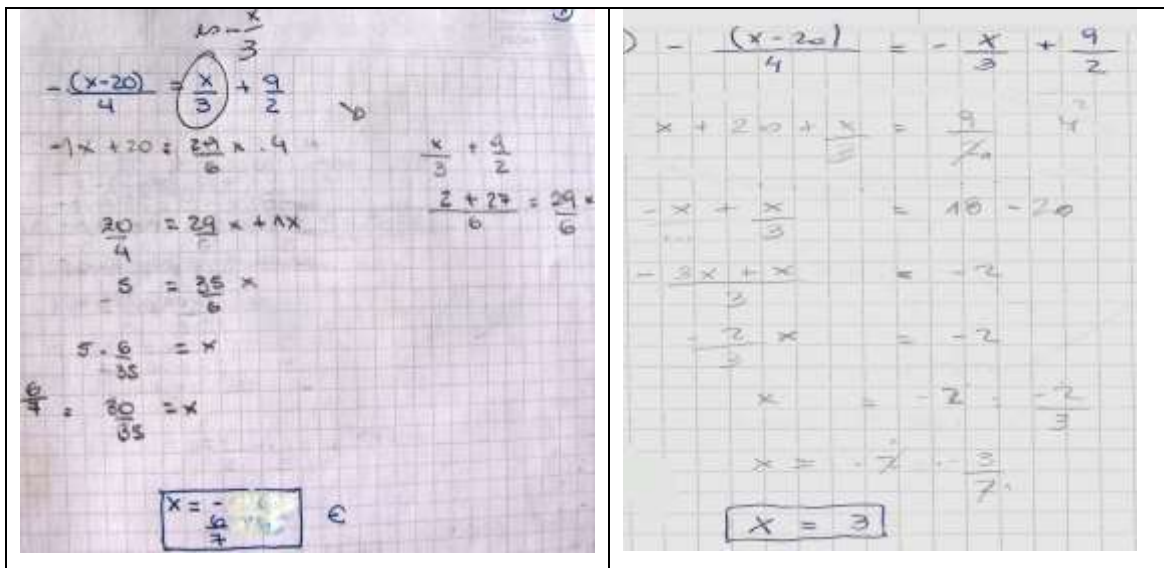 es - x/3
- (x-20)/4 = x/3 + 9/2
-1x + 20 = 29/6 x . 4
x/3 + 9/2
(2 + 27)/6 = 29/6 x
20/4 = 29 x + 1x
5 = 35/6 x
5 . 6/35 = x
6/7 = 30/35 = x
x = - 6/7
€
) - (x-20)/4 = - x/3 + 9/2
x + 20 + x/3 = 9/2 . 4²
- x + x/3 = 18 - 20
- (3x + x)/3 = -2
- 2/3 x = -2
x = -2 : -2/3
x = -2 . - 3/2
x = 3